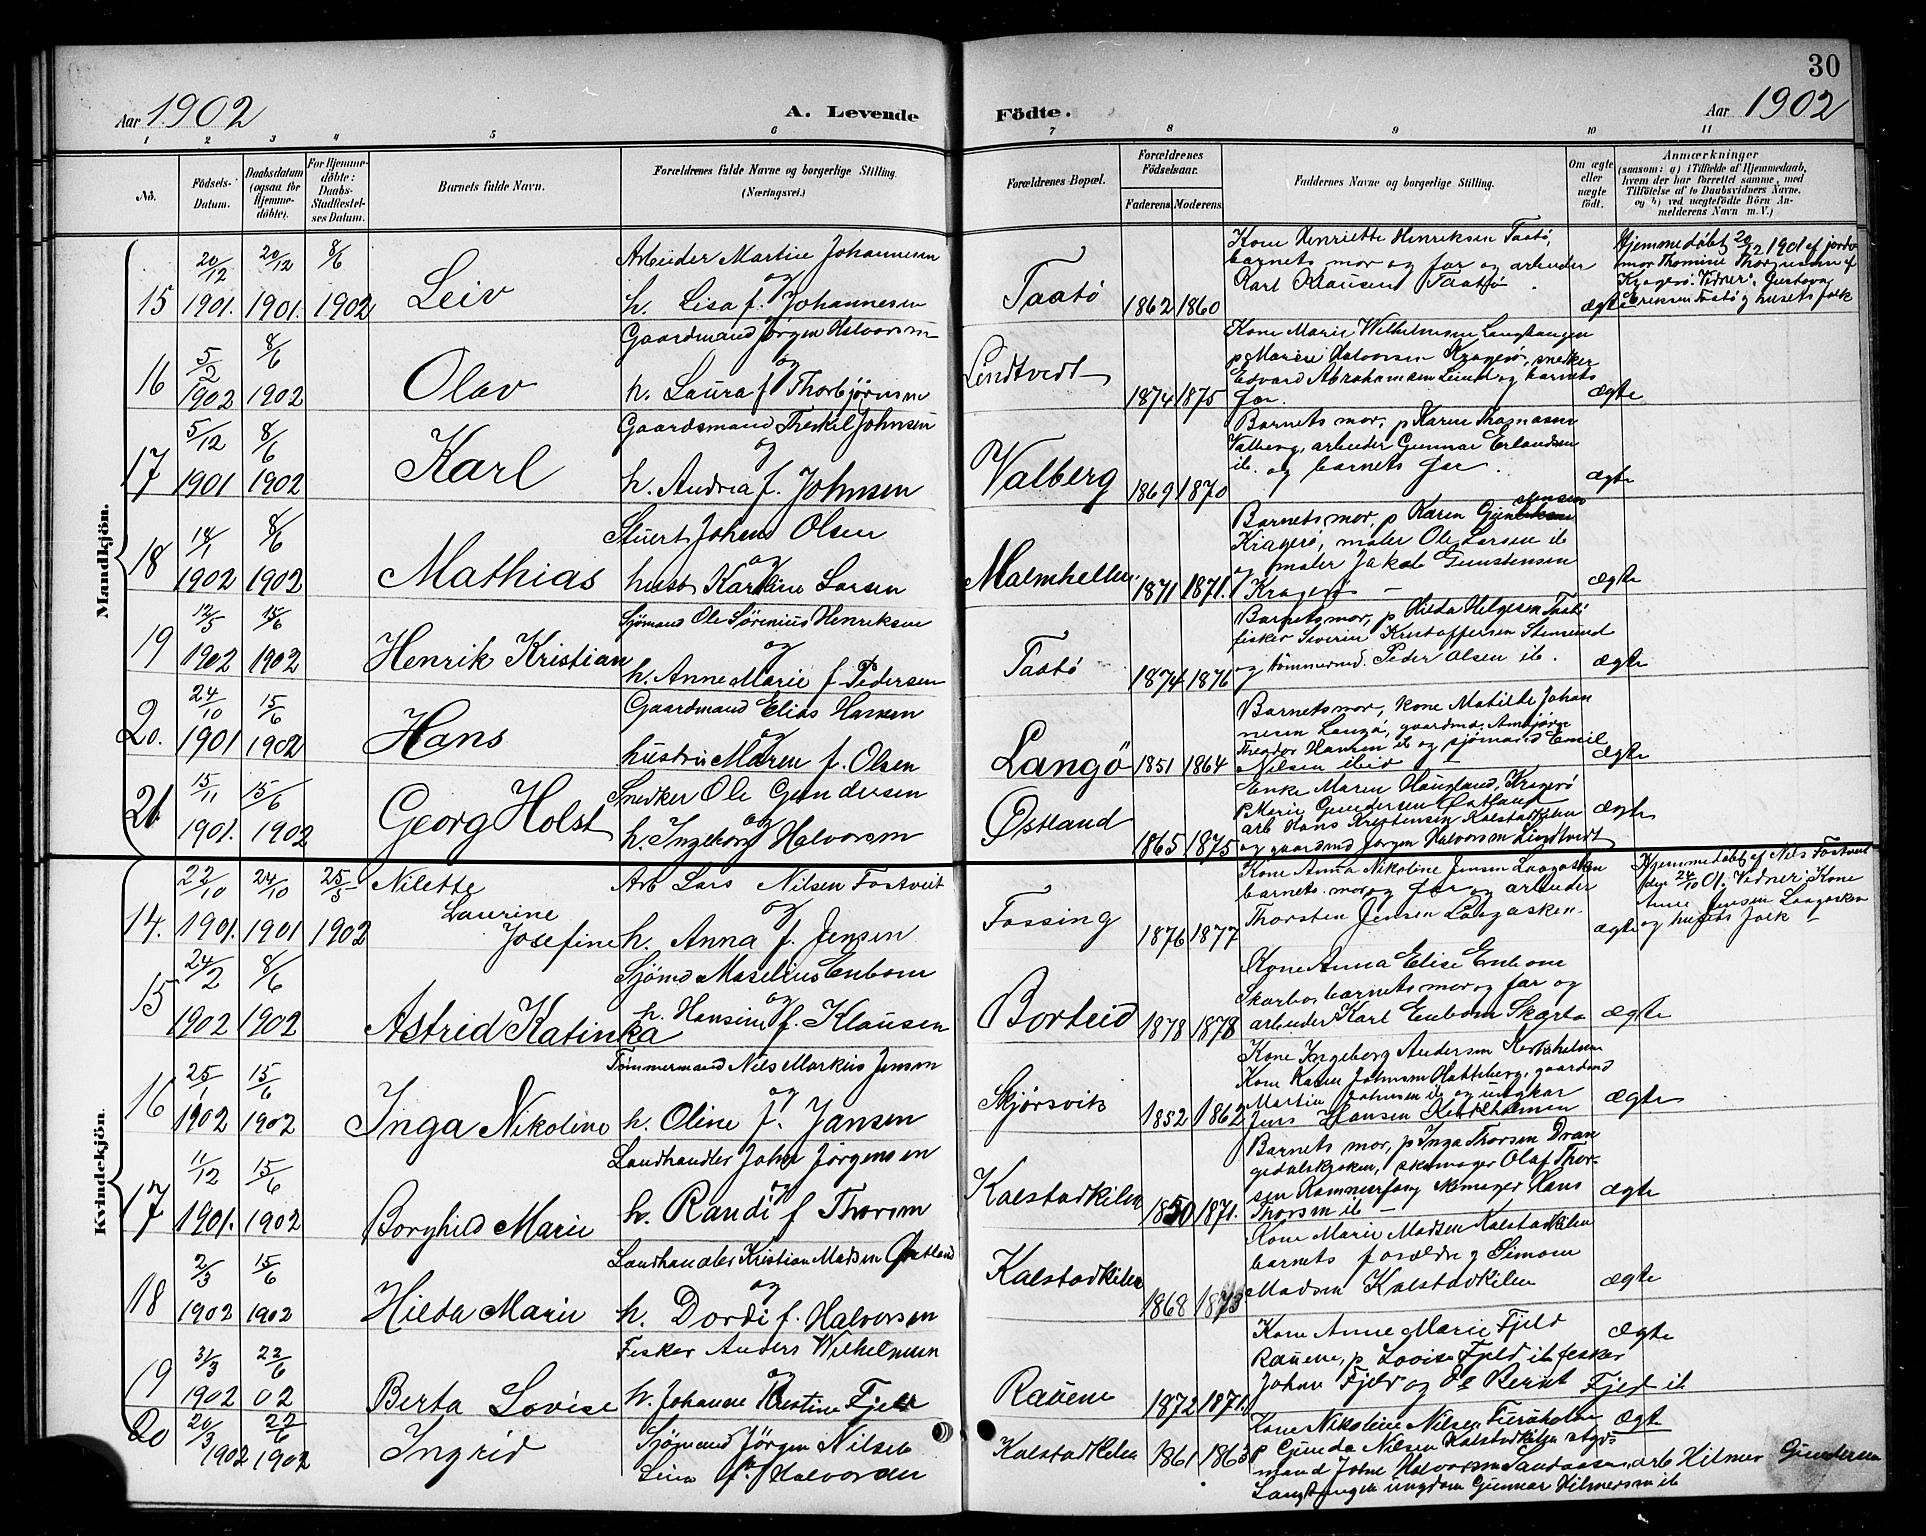 30
Aar 1902 A. Levende Födte. Aar 1902
1 2 3 4 5 6 7 8 9 10 11
No. Födsels-Datum. Daabsdatum (ogsaa for Hjemmedöbte). For Hjemmedöbte: Daabs-Stadfæstelses Datum. Barnets fulde Navn. Forældrenes fulde Navne og borgerlige Stilling. (Næringsvei.) Forældrenes Bopæl. Forældrenes Födselsaar. Faderens. Moderens. Faddernes Navne og borgerlige Stilling. Om ægte eller uægte födt. Anmærkninger (saasom: a) i Tilfælde af Hjemmedaab, hvem der har forrettet samme, med Tilföielse af to Daabsvidners Navne, og b) ved uægtefödte Börn Anmelderens Navn m. V.)
Mandkjön.
15 20/12 1901. 20/12 1901. 8/6 1902 Leiv
Arbeider Martin Johannesen
og
h. Lisa f. Johannesen
Taatö 1862 1860
Kone Henriette Henriksen Taatö,
barnets mor og far og arbeider
Karl Klausen Taatö.
ægte
Hjemmedöbt 20/12 1901 af jordmor Thomine
Kragerö. Vidner: Gustava
Eriksen Taatö og husets folk
16 5/2 1902 8/6 1902 Olav
Gaardmand Jörgen Halvorsen
og
h. Laura f. Thorbjörnsen
Lindtvedt 1874 1875
Kone Marie Wilhelmsen Langtangen
p Marie Halvorsen Kragerö, snedker
Edvard Abrahamsen og barnets
far.
ægte
17 5/12 1901 8/6 1902 Karl
Gaardsmand Therkel Johnsen
og
h. Andrea f. Johnsen
Valberg 1869 1870
Barnets mor, p Karen Thomasen
Valberg, arbeider Gunnar Erlandsen
ib. og barnets far.
ægte
18 18/1 1902 8/6 1902 Mathias
Stuert Johan Olsen
og
hust. Karoline Larsen
Malmhellen. 1871 1871.
Barnets mor, p Karen Gunstensen
Kragerö, maler Ole Larsen ib
og maler Jakob Gunstensen
Kragerö —
ægte
19 12/5 1902 15/6 1902 Henrik Kristian
Sjömand Ole Sörenius Henriksen
og
h. Anne Marie f. Pedersen
Taatö 1874 1876
Barnets mor, p Hilda Helgesen Taatö
fisker Severin Kristoffersen Stensund
og tömmermd. Peder Olsen ib.
ægte
20. 24/10 1901 15/6 1902 Hans
Gaardmand Elias Hansen
og
hustru Maren f. Olsen
Langö 1851 1864
Barnets mor, kone Matilde Johannesen Langö, gaardmd. Ambjörn
Theodor Hansen ib og sjömand Emil
Nilsen ibid —
ægte
21. 15/11 1901. 15/6 1902 Georg Holst
Snedker Ole Gundersen
og
h. Ingeborg Halvorsen
Østland 1865 1875
Enke Maren Haugland, Kragerö
p Marie Gundersen Østland
arb Hans Kristensen Kalstadkilen
og gaardmd Jörgen Halvorsen Lindtvedt
ægte
Kvindekjön.
14. 22/10 1901. 24/10 1901 25/5 1902
Nilette
Laurine
Josefine
Arb Lars Nilsen Tostveit
og
h. Anna f. Jensen
Tossing 1876 1877
Kone Anna Nikoline Jensen Laagasken
barnets mor og far og arbeider
Thorsten Jensen Laagasken.
ægte
Hjemmedöbt af Nils Tostveit
24/10 01. Vidner: Kone
Anne Jensen Laagasken
og husets folk —
15 24/2 1902 8/6 1902 Astrid Katinka
Sjömd Maselius Enbom
og
h. Hansine f. Klausen
Borteid 1878 1878
Kone Anna Elise Enbom
Skarbo, barnets mor og far og
arbeider Karl Enbom Skarbo
ægte
16 25/1 1902 15/6 1902 Inga Nikoline
Tömmermand Nils Markus Jensen
og
h. Oline f. Jansen
Skjörsvik 1852 1862
Kone Ingeborg Andersen
Kone Karen Johnsen Hatteberg, gaardmd
Martin Johnsen ib og ungkar
Jens Hansen
ægte
17 11/12 1901. 15/6 1902 Borghild Marie
Landhandler John Jörgensen
og
h. Randi f. Thorsen
Kalstadkilen 1850 1871.
Barnets mor, p Inga Thorsen Drangedalskroken, skomager Olaf Thorsen Kammerfoss, skomager Hans
Thorsen ib —
ægte
18 2/3 1902 15/6 1902 Hilda Marie
Landhandler Kristian Madsen Østland
og
h. Dordi f. Halvorsen
Kalstadkilen 1868 1873
Kone Marie Madsen Kalstadkilen
barnets forældre og Simon
Madsen Kalstadkilen
ægte
19 31/3 1902 22/6 02 Berta Lovise
Fisker Anders Wilhelmsen
og
h. Johanne Kristine Fjeld
Rauene 1872 1871.
Kone Anne Marie Fjeld
Rauene, p Lovise Fjeld ib fisker
Johan Fjeld og Ole Bernt Fjeld ib
ægte
20 20/3 1902 22/6 1902 Ingrid
Sjömand Jörgen Nilsen
og
Lina f. Halvorsen
Kalstadkilen 1861 1863
Kone Nikoline Nilsen
p Gunda Nilsen Kalstadkilen styrmand John Halvorsen Sandaasen, arb Hilmer Gundersen
Langtangen ungdom Gunnar Hilmersen ib
ægte